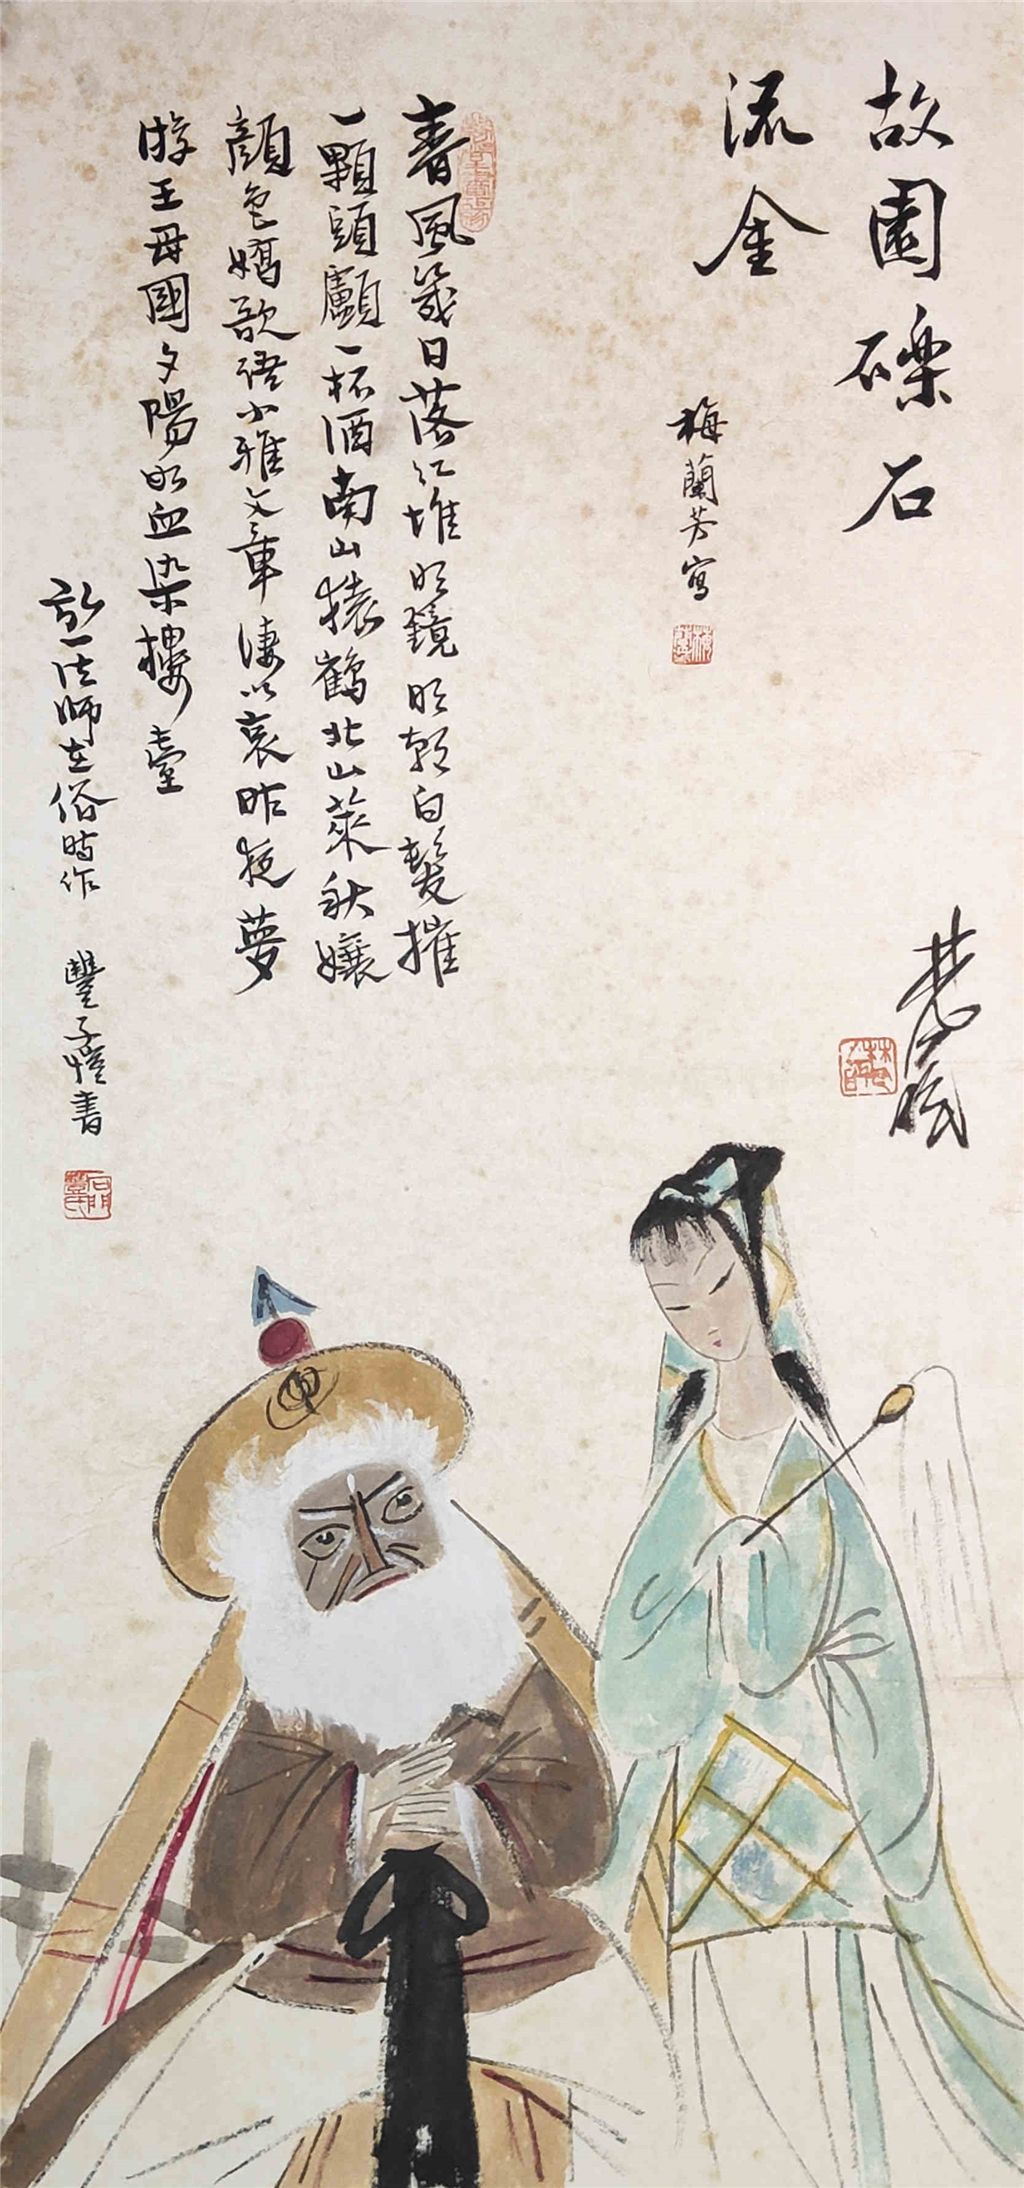 故園礫石
流金
梅蘭芳寫
林風眠
春風幾日落紅堆明鏡明朝白髮摧
一顆頭顱一杯酒南山猿鶴北山萊秋孃
顏色嬌欲語小雅文章淒以哀昨夜夢
游王母國夕陽如血染樓臺
弘一法師在俗時作 豐子愷書
石門豐氏